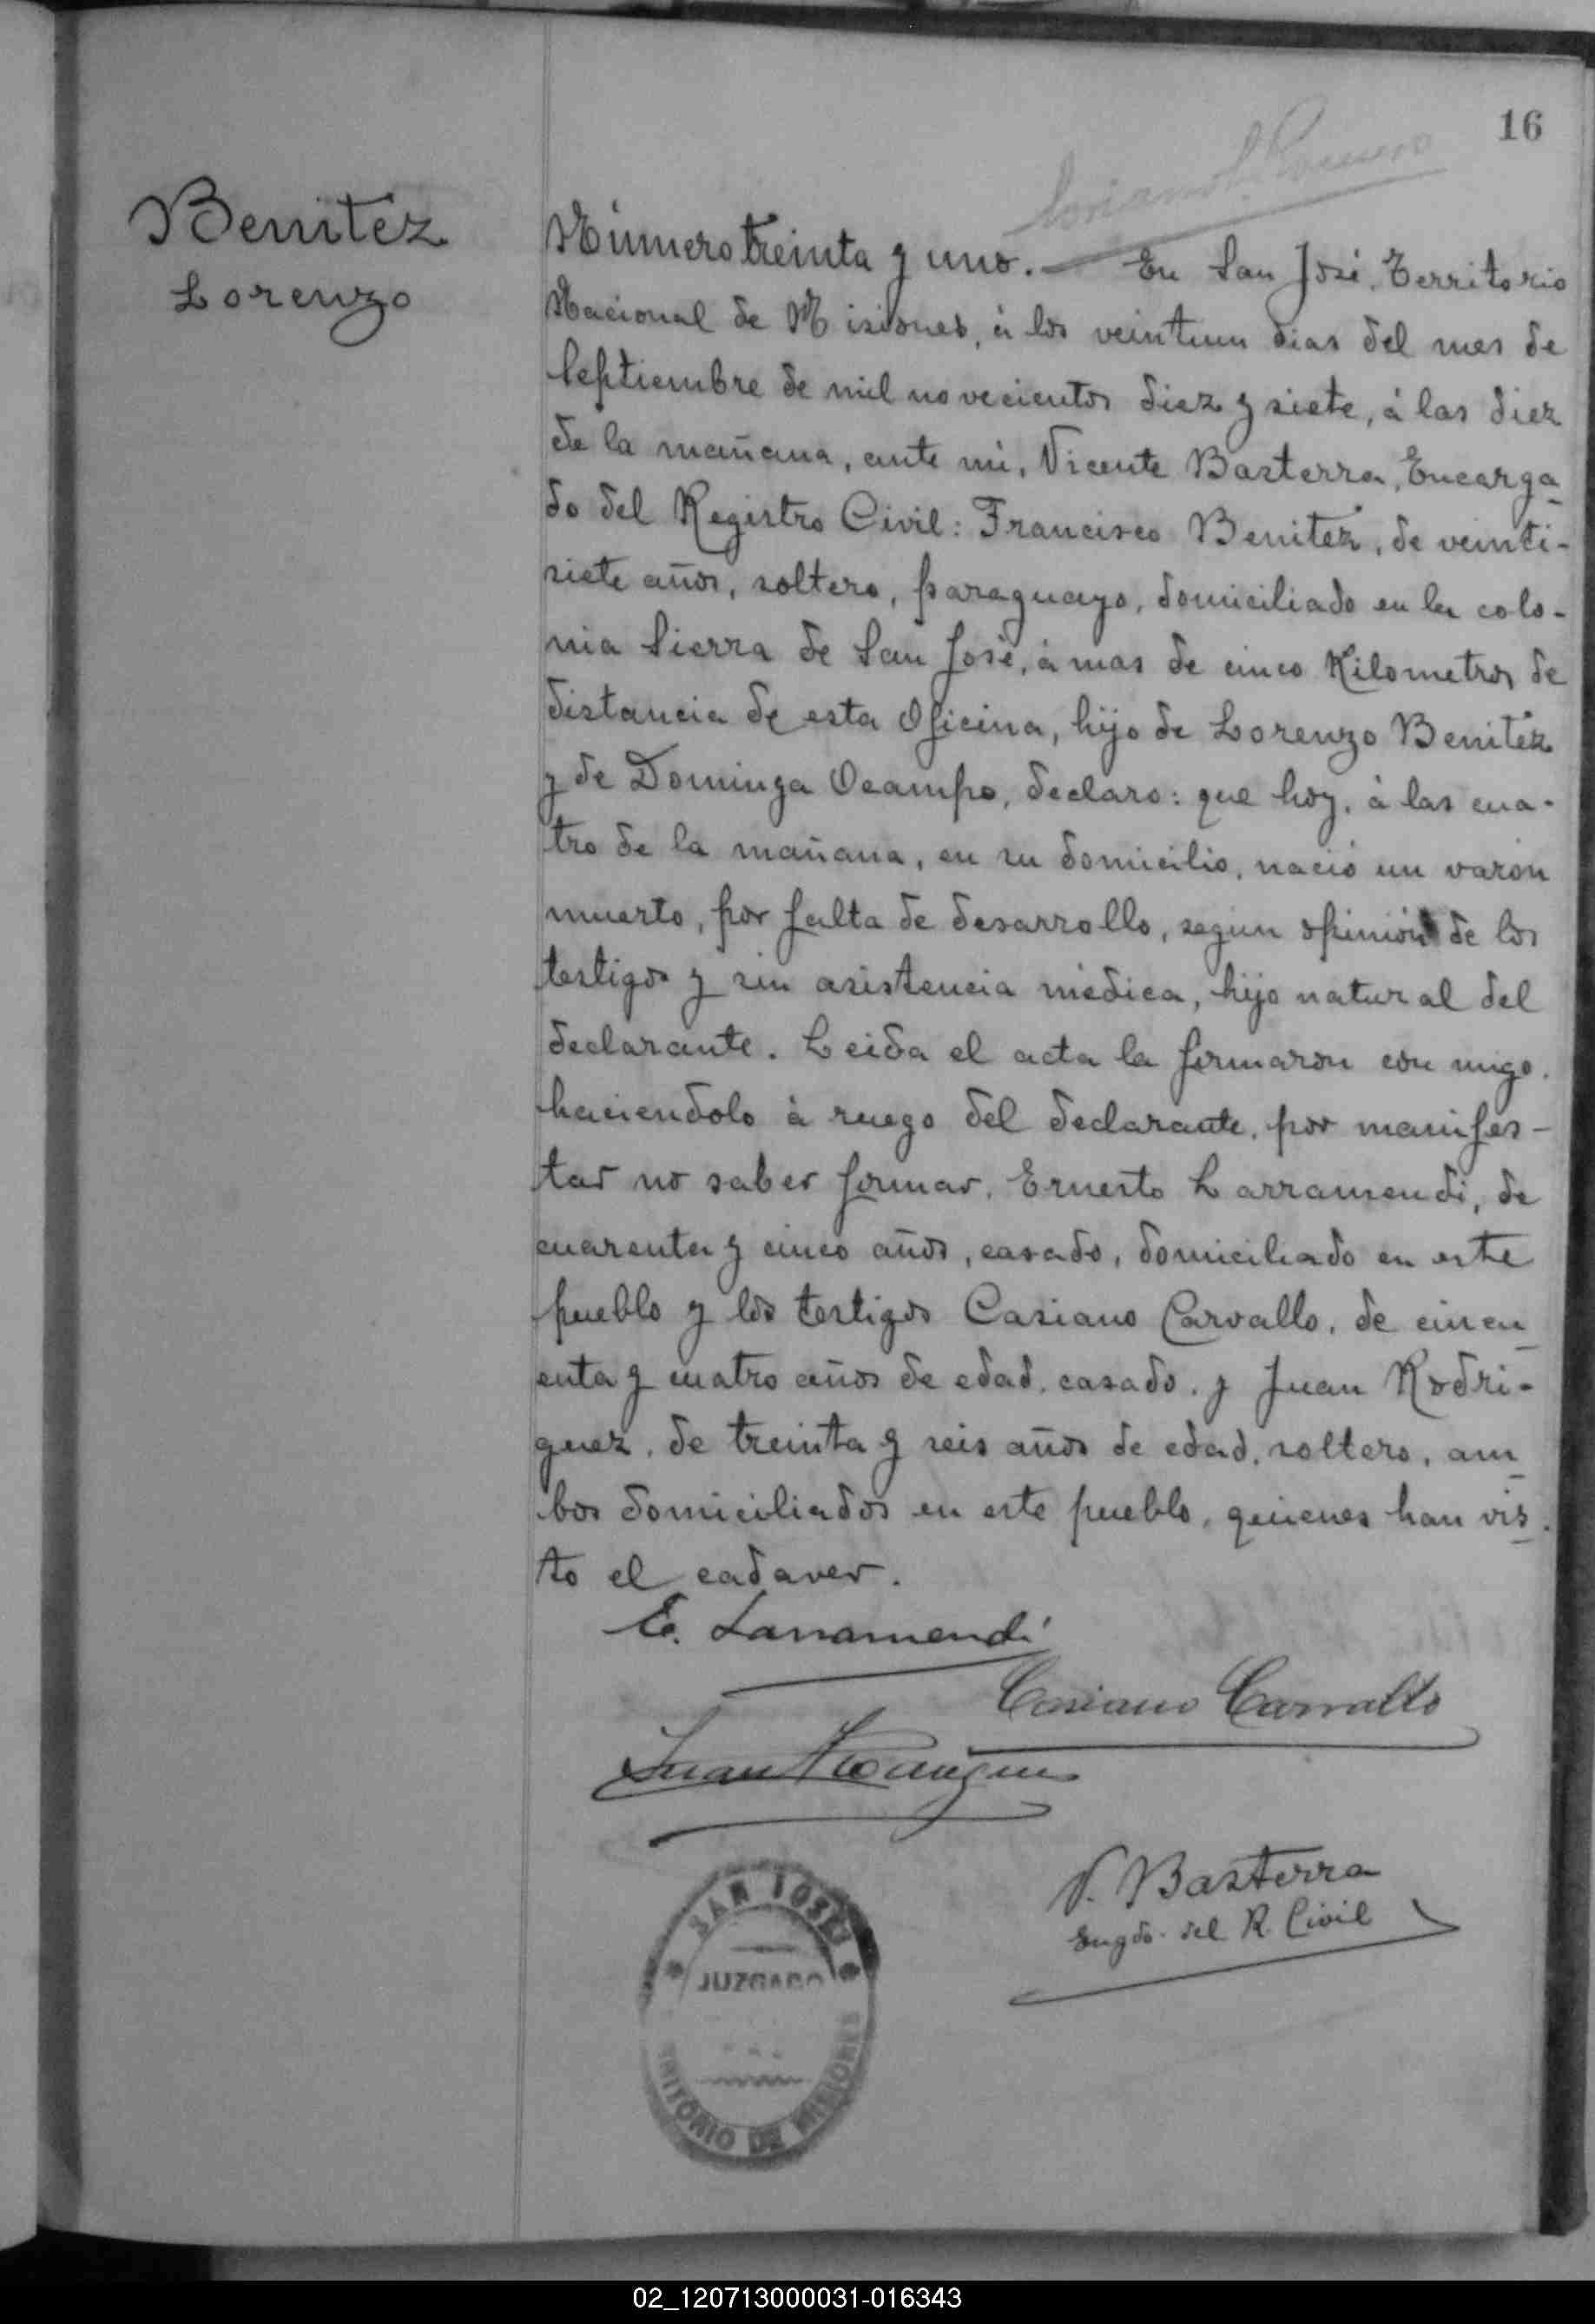 16
Benitez
Lorenzo
Número treinta y uno. — En San José, Territorio
Nacional de Misiones, á los veintiun dias del mes de
Septiembre de mil novecientos diez y siete, á las diez
de la mañana, ante mi, Vicente Basterra, Encarga-
do del Registro Civil: Francisco Benitez, de veinti-
siete años, soltero, paraguayo, domiciliado en la colo-
nia Sierra de San José, á mas de cinco Kilometros de
distancia de esta Oficina, hijo de Lorenzo Benitez
y de Dominga Ocampo, declaro: que hoy, á las cua-
tro de la mañana, en su domicilio, nació un varón
muerto, por falta de desarrollo, segun opinión de los
testigos y sin asistencia médica, hijo natural del
declarante. Leida el acta la firmaron con migo.
haciendolo á ruego del declarante, por manifes-
tar no saber firmar, Ernesto Larramendi, de
cuarenta y cinco años, casado, domiciliado en este
pueblo y los testigos Casiano Carvallo, de cincu-
enta y cuatro años de edad, casado, y Juan Rodri-
guez, de treinta y seis años de edad, soltero, am-
bos domiciliados en este pueblo, quienes han vis-
to el cadaver.
E. Larramendi
Casiano Carvallo
Juan Rodriguez
V. Basterra
Engdo. del R. Civil
SAN JOSE
JUZGADO
TERRITORIO DE MISIONES
02_120713000031-016343